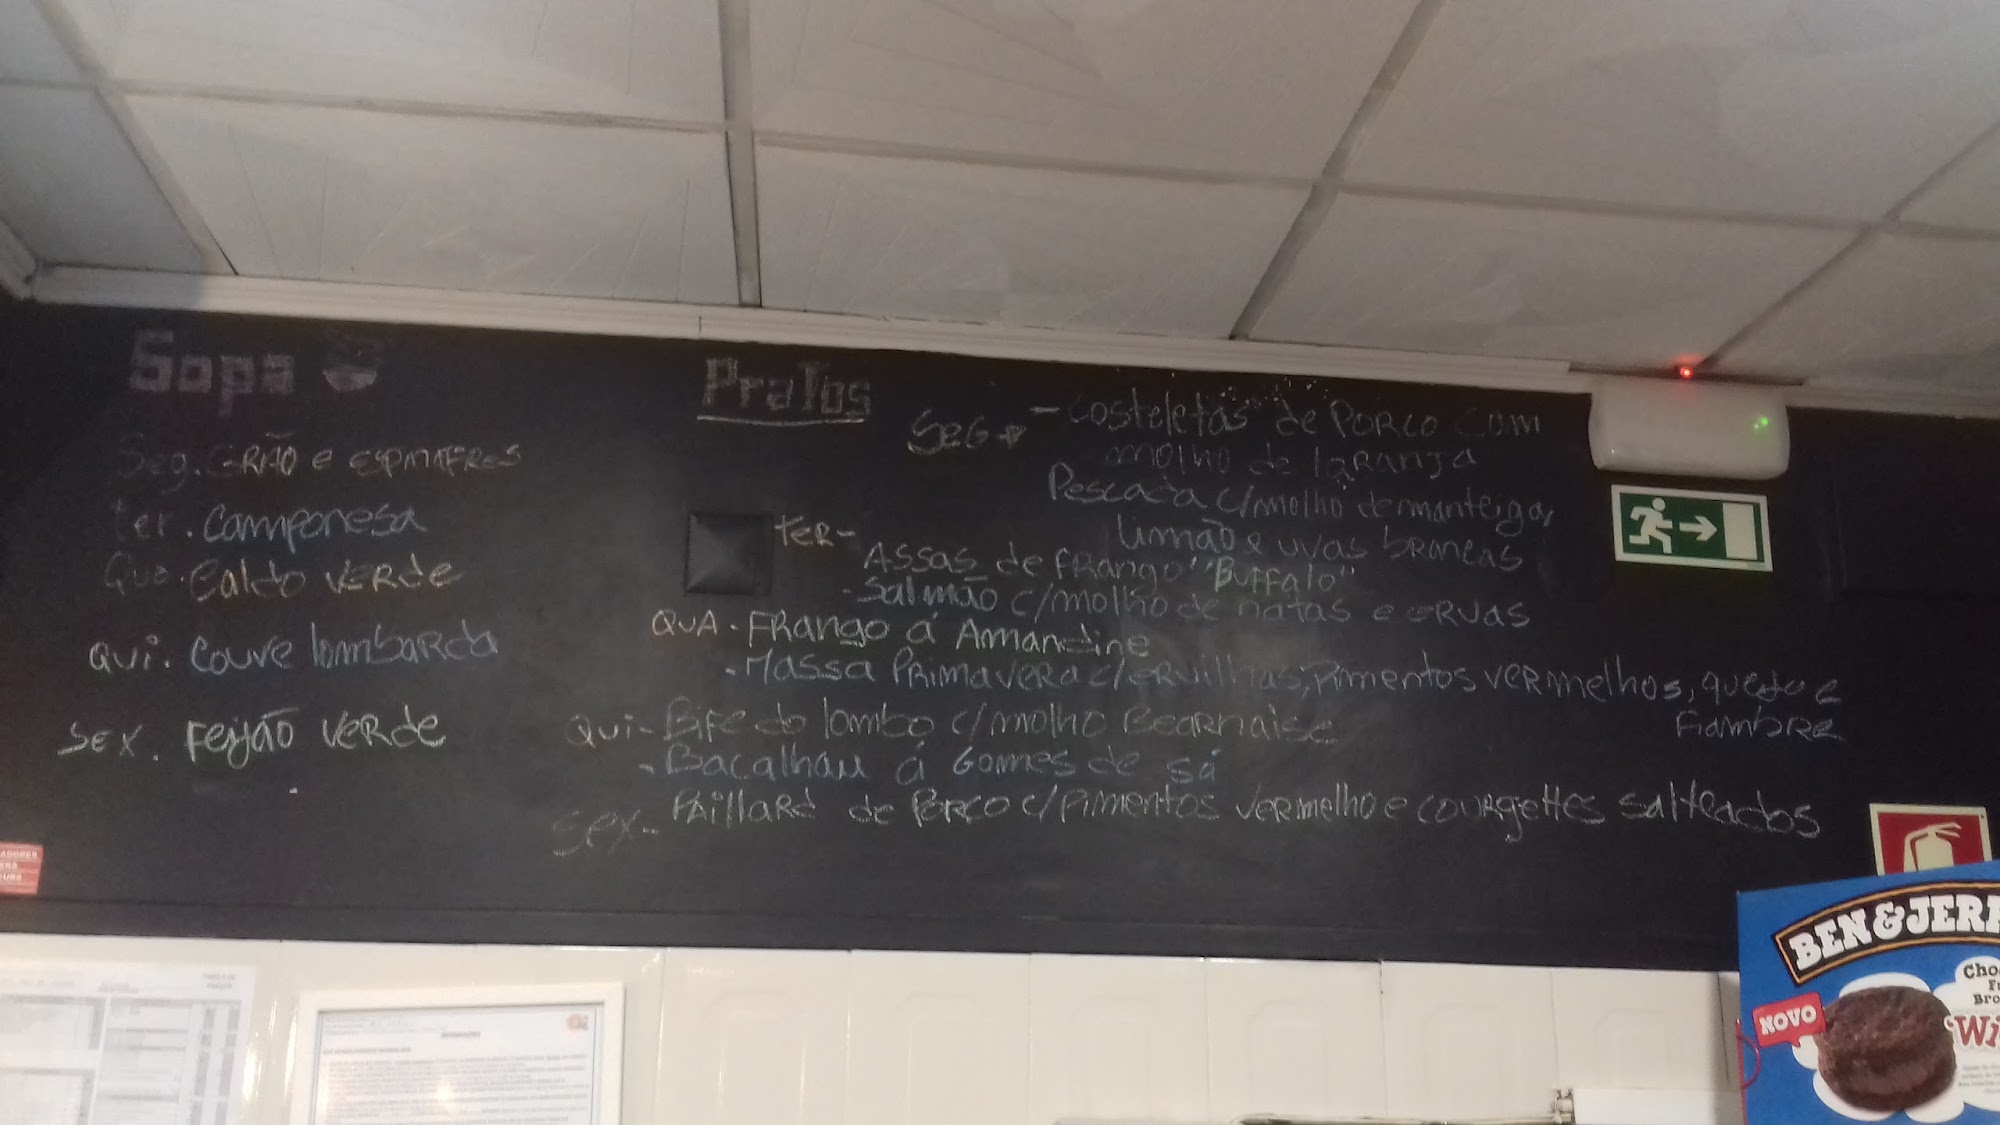 Sopa
Seg. GRÃO e ESPINAFRES
ter. Camponesa
Qua. Caldo VERDE
QUi. Couve lombarda
SEX. Feijão VERde
PraTos
SEG - Costeletas de PORCO COM
molho de laRANJA
Pescada c/molho de manteiga,
limão e uvas brancas
TER-
ASSAS de FRango "Buffalo"
-Salmão c/molho de natas e ERVAS
QUA. FRango á Amandine
-MASSA PRIMAVERA c/ERVILHAS, PIMENTOS VERMELHOS, queijo e
Fiambre
QUI- Bife do lombo c/molho Bearnaise
- Bacalhau á Gomes de Sá
SEX- PAillard de PORCO c/PIMENTOS VERMELHO e COURGETTES SALTEADOS
ADORES
BEN & JER
Cho
Fu
Bro
NOVO
'Wi